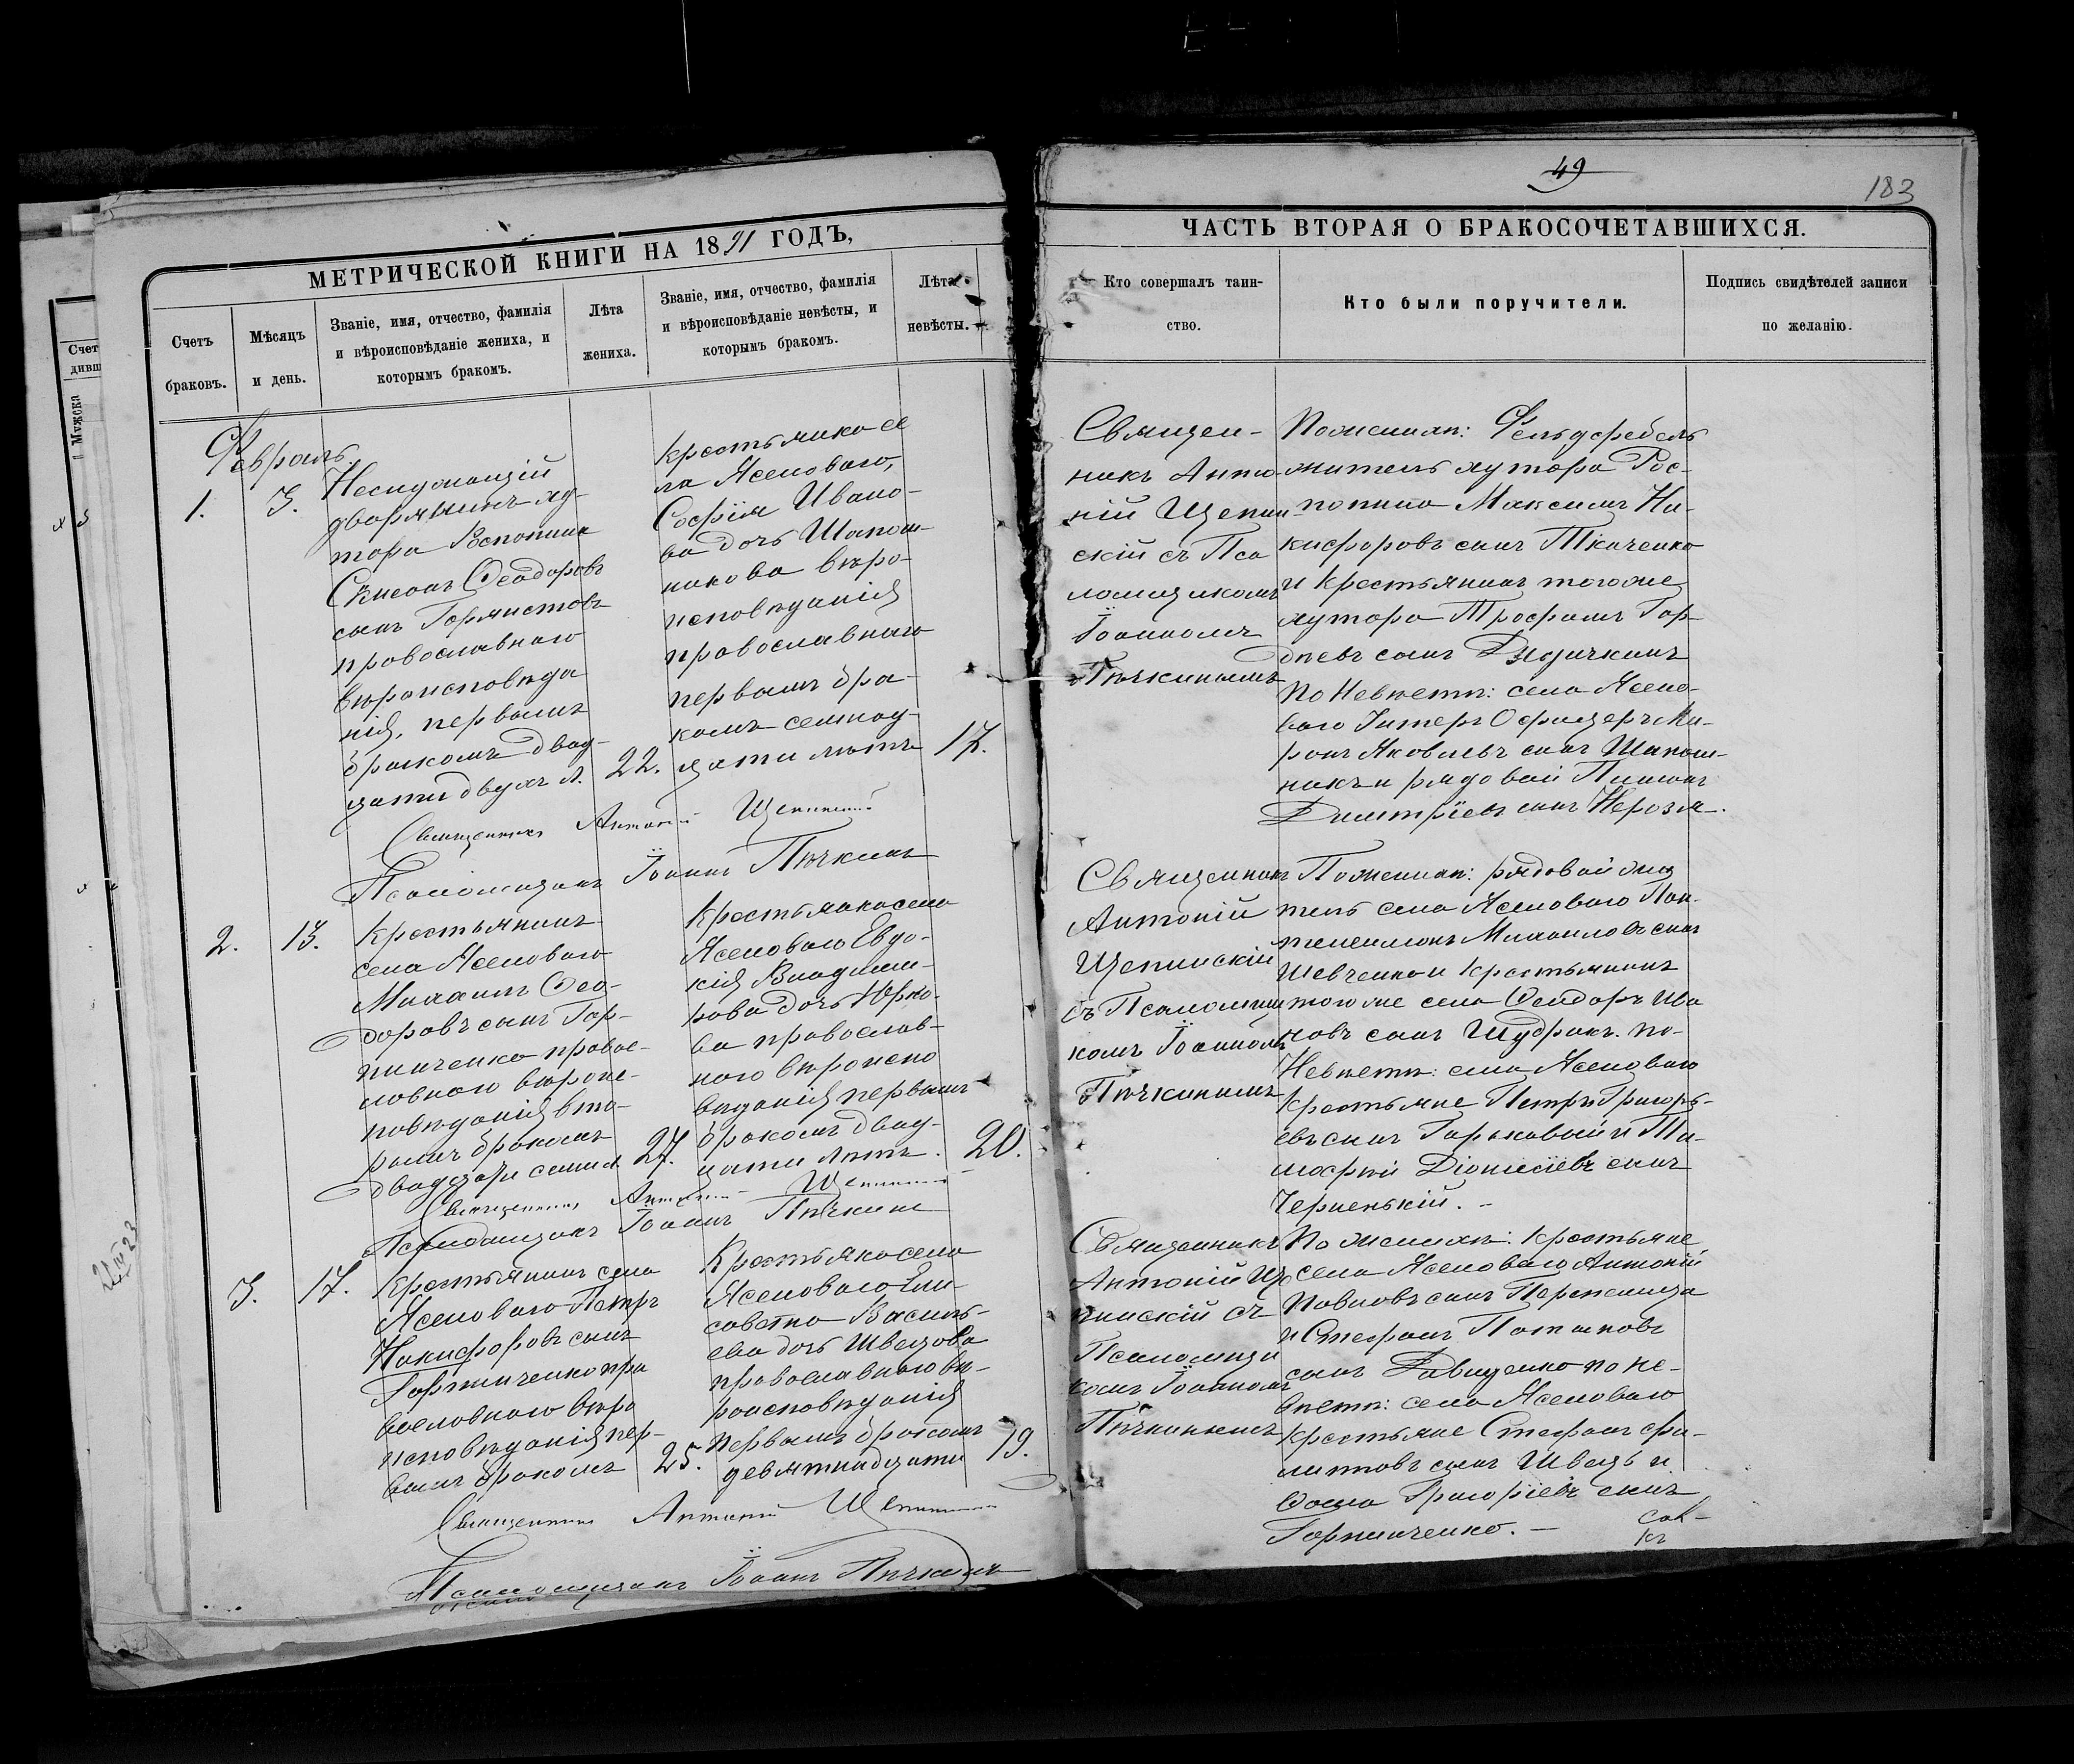 49
183
МЕТРИЧЕСКОЙ КНИГИ НА 1891 ГОДЪ,
Счетъ
браковъ.
Мѣсяцъ
и день.
Званіе, имя, отчество, фамилія
и вѣроисповѣданіе жениха, и
которымъ бракомъ.
Лѣта
жениха.
Званіе, имя, отчество, фамилія
и вѣроисповѣданіе невѣсты, и
которымъ бракомъ.
Лѣта
невѣсты.
Февраль.
1.
3.
Неслужащій
дворянинъ ху-
тора Роспопина
Симеонъ Ѳеодоровъ
сынъ
православнаго
вѣроисповѣда
нія, первымъ
бракомъ двад-
цати двухъ л.
22.
Крестьянка се
ла Ясеноваго,
Софія Ивано-
ва дочь Шапош-
никова вѣро-
исповѣданія
православнаго
первымъ бра-
комъ семнад-
цати лѣтъ
17.
Священникъ Антоній Щепинскій
Псаломщикъ Іоаннъ Пѣчкинъ
2.
13.
Крестьянинъ
села Ясеноваго
Михаилъ Ѳео-
доровъ сынъ Гор-
пинченко правос-
лавнаго вѣроис-
повѣданія вто-
рымъ бракомъ
двадцати семи л.
27.
Крестьянка села
Ясеноваго Евдо-
кія Владими-
рова дочь Юрко-
ва православ-
наго вѣроиспо
вѣданія первымъ
бракомъ двад-
цати лѣтъ.
20.
Священникъ Антоній Щепинскій
Псаломщикъ Іоаннъ Пѣчкинъ
3.
17.
Крестьянинъ села
Ясеноваго Петръ
Никифоровъ сынъ
Горпинченко пра
вославнаго вѣро
исповѣданія пер-
вымъ бракомъ
25.
Крестьянка села
Ясеноваго Ели-
савета Василь-
ева дочь Швецова
православнаго вѣ-
роисповѣданія
первымъ бракомъ
девятнадцати
19.
Священникъ Антоній Щепинскій
Псаломщикъ Іоаннъ Пѣчкинъ
ЧАСТЬ ВТОРАЯ О БРАКОСОЧЕТАВШИХСЯ.
Кто совершалъ таин-
ство.
Кто были поручители.
Подпись свидѣтелей записи
по желанію.
Священ-
никъ Анто
ній Щепин
скій съ Пса
ломщикомъ
Іоанномъ
Пѣчкинымъ
По женихѣ: Фельдфебель
житель хутора Рос-
попина Максимъ Ни-
кифоровъ сынъ Ткаченко
и Крестьянинъ того же
хутора Трофимъ Гор-
дѣевъ сынъ
По Невѣстѣ: села Ясено-
ваго Унтеръ Офицеръ Ми-
ронъ Яковлевъ сынъ Шапош-
никъ и рядовой
Димитріевъ сынъ Нерозя.
Священникъ
Антоній
Щепинскій
съ Псаломщи
комъ Іоанномъ
Пѣчкинымъ
По женихѣ: рядовой жи
тель села Ясеноваго Пан-
телеимонъ Михаиловъ сынъ
Шевченко и Крестьянинъ
того же села Ѳеодоръ Ива
новъ сынъ Щудракъ. По-
Невѣстѣ: села Ясеноваго
Крестьяне Петръ Григорь-
евъ сынъ Горьковый и Ти-
моѳей Діонисіевъ сынъ
Черненькій. -
Священникъ
Антоній Ще
пинскій съ
Псаломщи
комъ Іоанномъ
Пѣчкинымъ
По женихѣ: Крестьяне
села Ясеноваго Антоній
Павловъ сынъ Перепелица
и Стефанъ Потаповъ
сынъ Давиденко по не-
вѣстѣ: села Ясеноваго
Крестьяне Стефанъ Фи-
липповъ сынъ Швецъ и
Ѳома Григоріевъ сынъ
Горпинченко. -